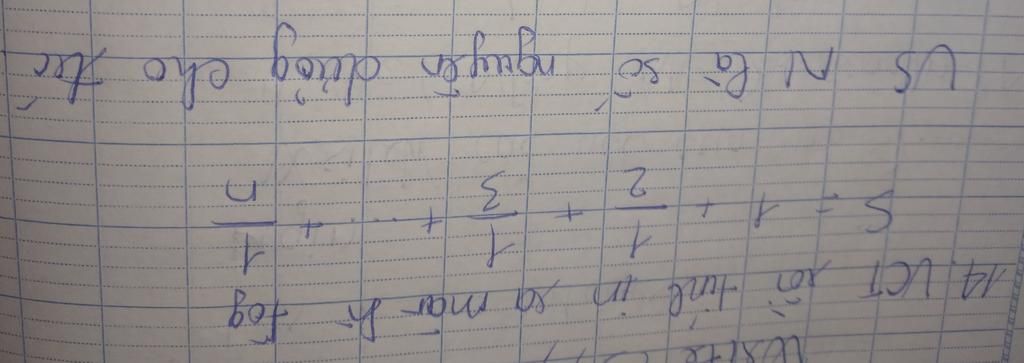 14. VCT tính in ra màn h- tog
S = 1 + 1/2 + 1/3 + ... + 1/n
VS N là số nguyên dưog cho trc